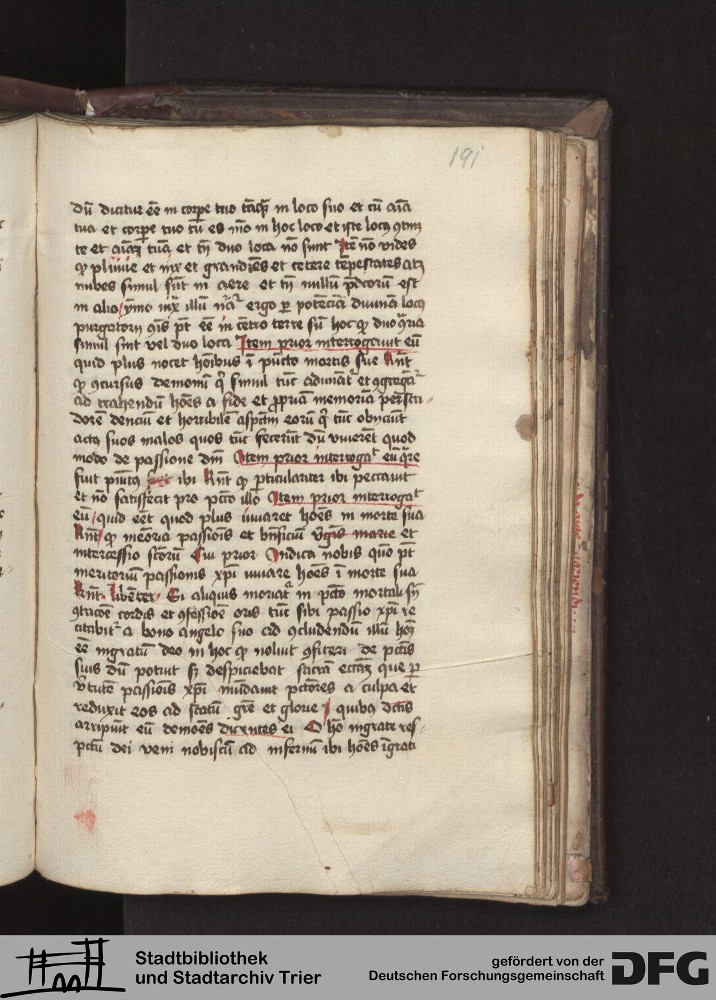 191
dū dicitur eē in corpe tuo tāq̄ in loco suo et cū aīa
tua et corpe tuo tu es īmo in hoc loco et iste locus 9tinz
te et aīaz tuā et tn̄ duo loca nō sunt Itē nō vides
q̄ pluuie et nix et grandines et cetere tēpestates atz
nubes simul sūt in aere et tn̄ nullū p̄dcorum est
in alio ymo iux illū ergo per potēciā diuinā locus
purgatorij eē in cētro terre sūt hoc q̄
simul sint vel duo loca Item prior interrogauit eū
quid plus nocet hoībus ī pūcto mortis sue Rn̄t
q̄ 9cursus demonū q̄ simul tūc adunāt et 9gregāt
ad trahendū hoēs a fide et propriā memoriā
dorē dencium et horribilē aspctm eorū q̄ tūc obijciūt
actus suos malos quos tūc fecerūt dū viuerēt quod
modo de passione dn̄i Item prior interrogat eū q̄re
fuit ibi Rn̄t q̄ perticulariter ibi peccauit
et nō satisfecit pro pctō illo Item prior interrogat
eū quid eēt quod plus iuuaret hoēs in morte sua
Rn̄t q̄ meōria passionis et bn̄ficiū v̄gīs marie et
intercessio sctōrum Cui prior Indica nobis quō p̄t
meritorium passionis xp̄i iuuare hoēs ī morte sua
Rn̄t libēter Si aliquis moriat in pctō mortali sn̄
9tricōe cordis et 9fessiōe oris tūc sibi passio xp̄i re
citabit a bono angelo suo ad 9cludendū illū hoēz
eē ingratū deo in hoc q̄ noluit 9fiteri de pctīs
suis dū potuit sz despiciebat sacrā ecciāz que per
v̄tutē passiōis xp̄i mūdauit pctōres a culpa et
reduxit eos ad statū grē et glorie quibus dictīs
arripiūt eū demoēs dicentes ei O hō ingrate res-
pctū dei veni nobiscū ad infernū ibi hoēs īgrati
Stadtbibliothek
und Stadtarchiv Trier
gefördert von der
Deutschen Forschungsgemeinschaft
DFG